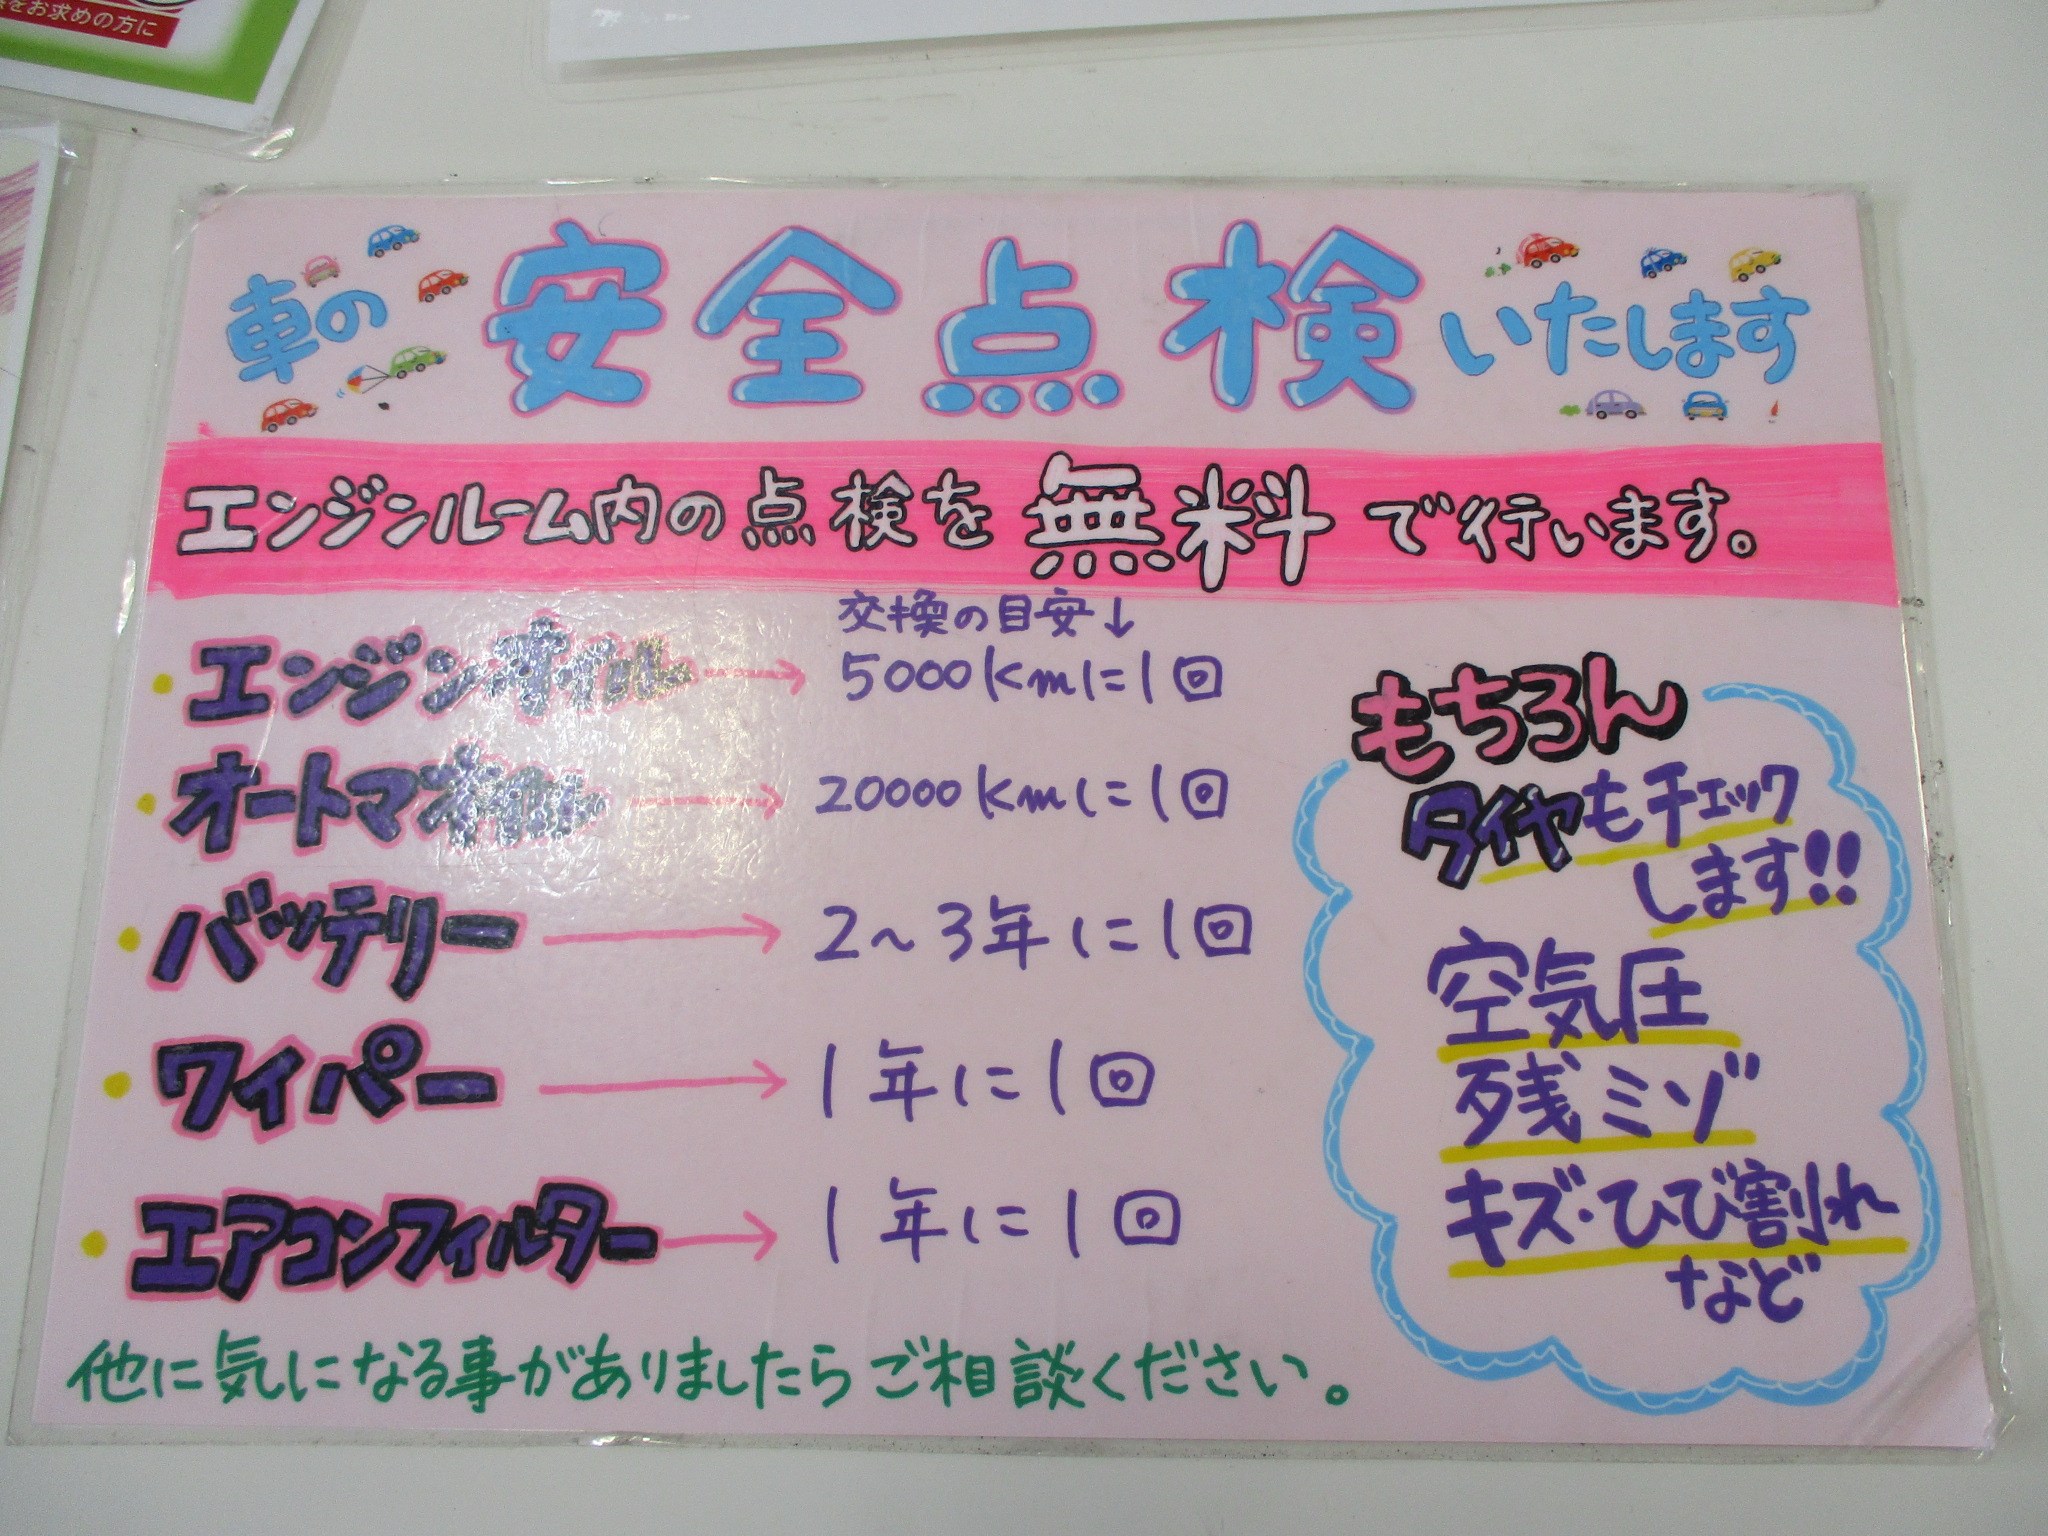 をお求めの方に
車の安全点検いたします
エンジンルーム内の点検を無料で行います。
交換の目安↓
・エンジンオイル→5000kmに1回
・オートマオイル→20000kmに1回
・バッテリー→2~3年に1回
・ワイパー→1年に1回
・エアコンフィルター→1年に1回
もちろん
タイヤもチェック
します!!
空気圧
残ミゾ
キズ・ひび割れ
など
他に気になる事がありましたらご相談ください。